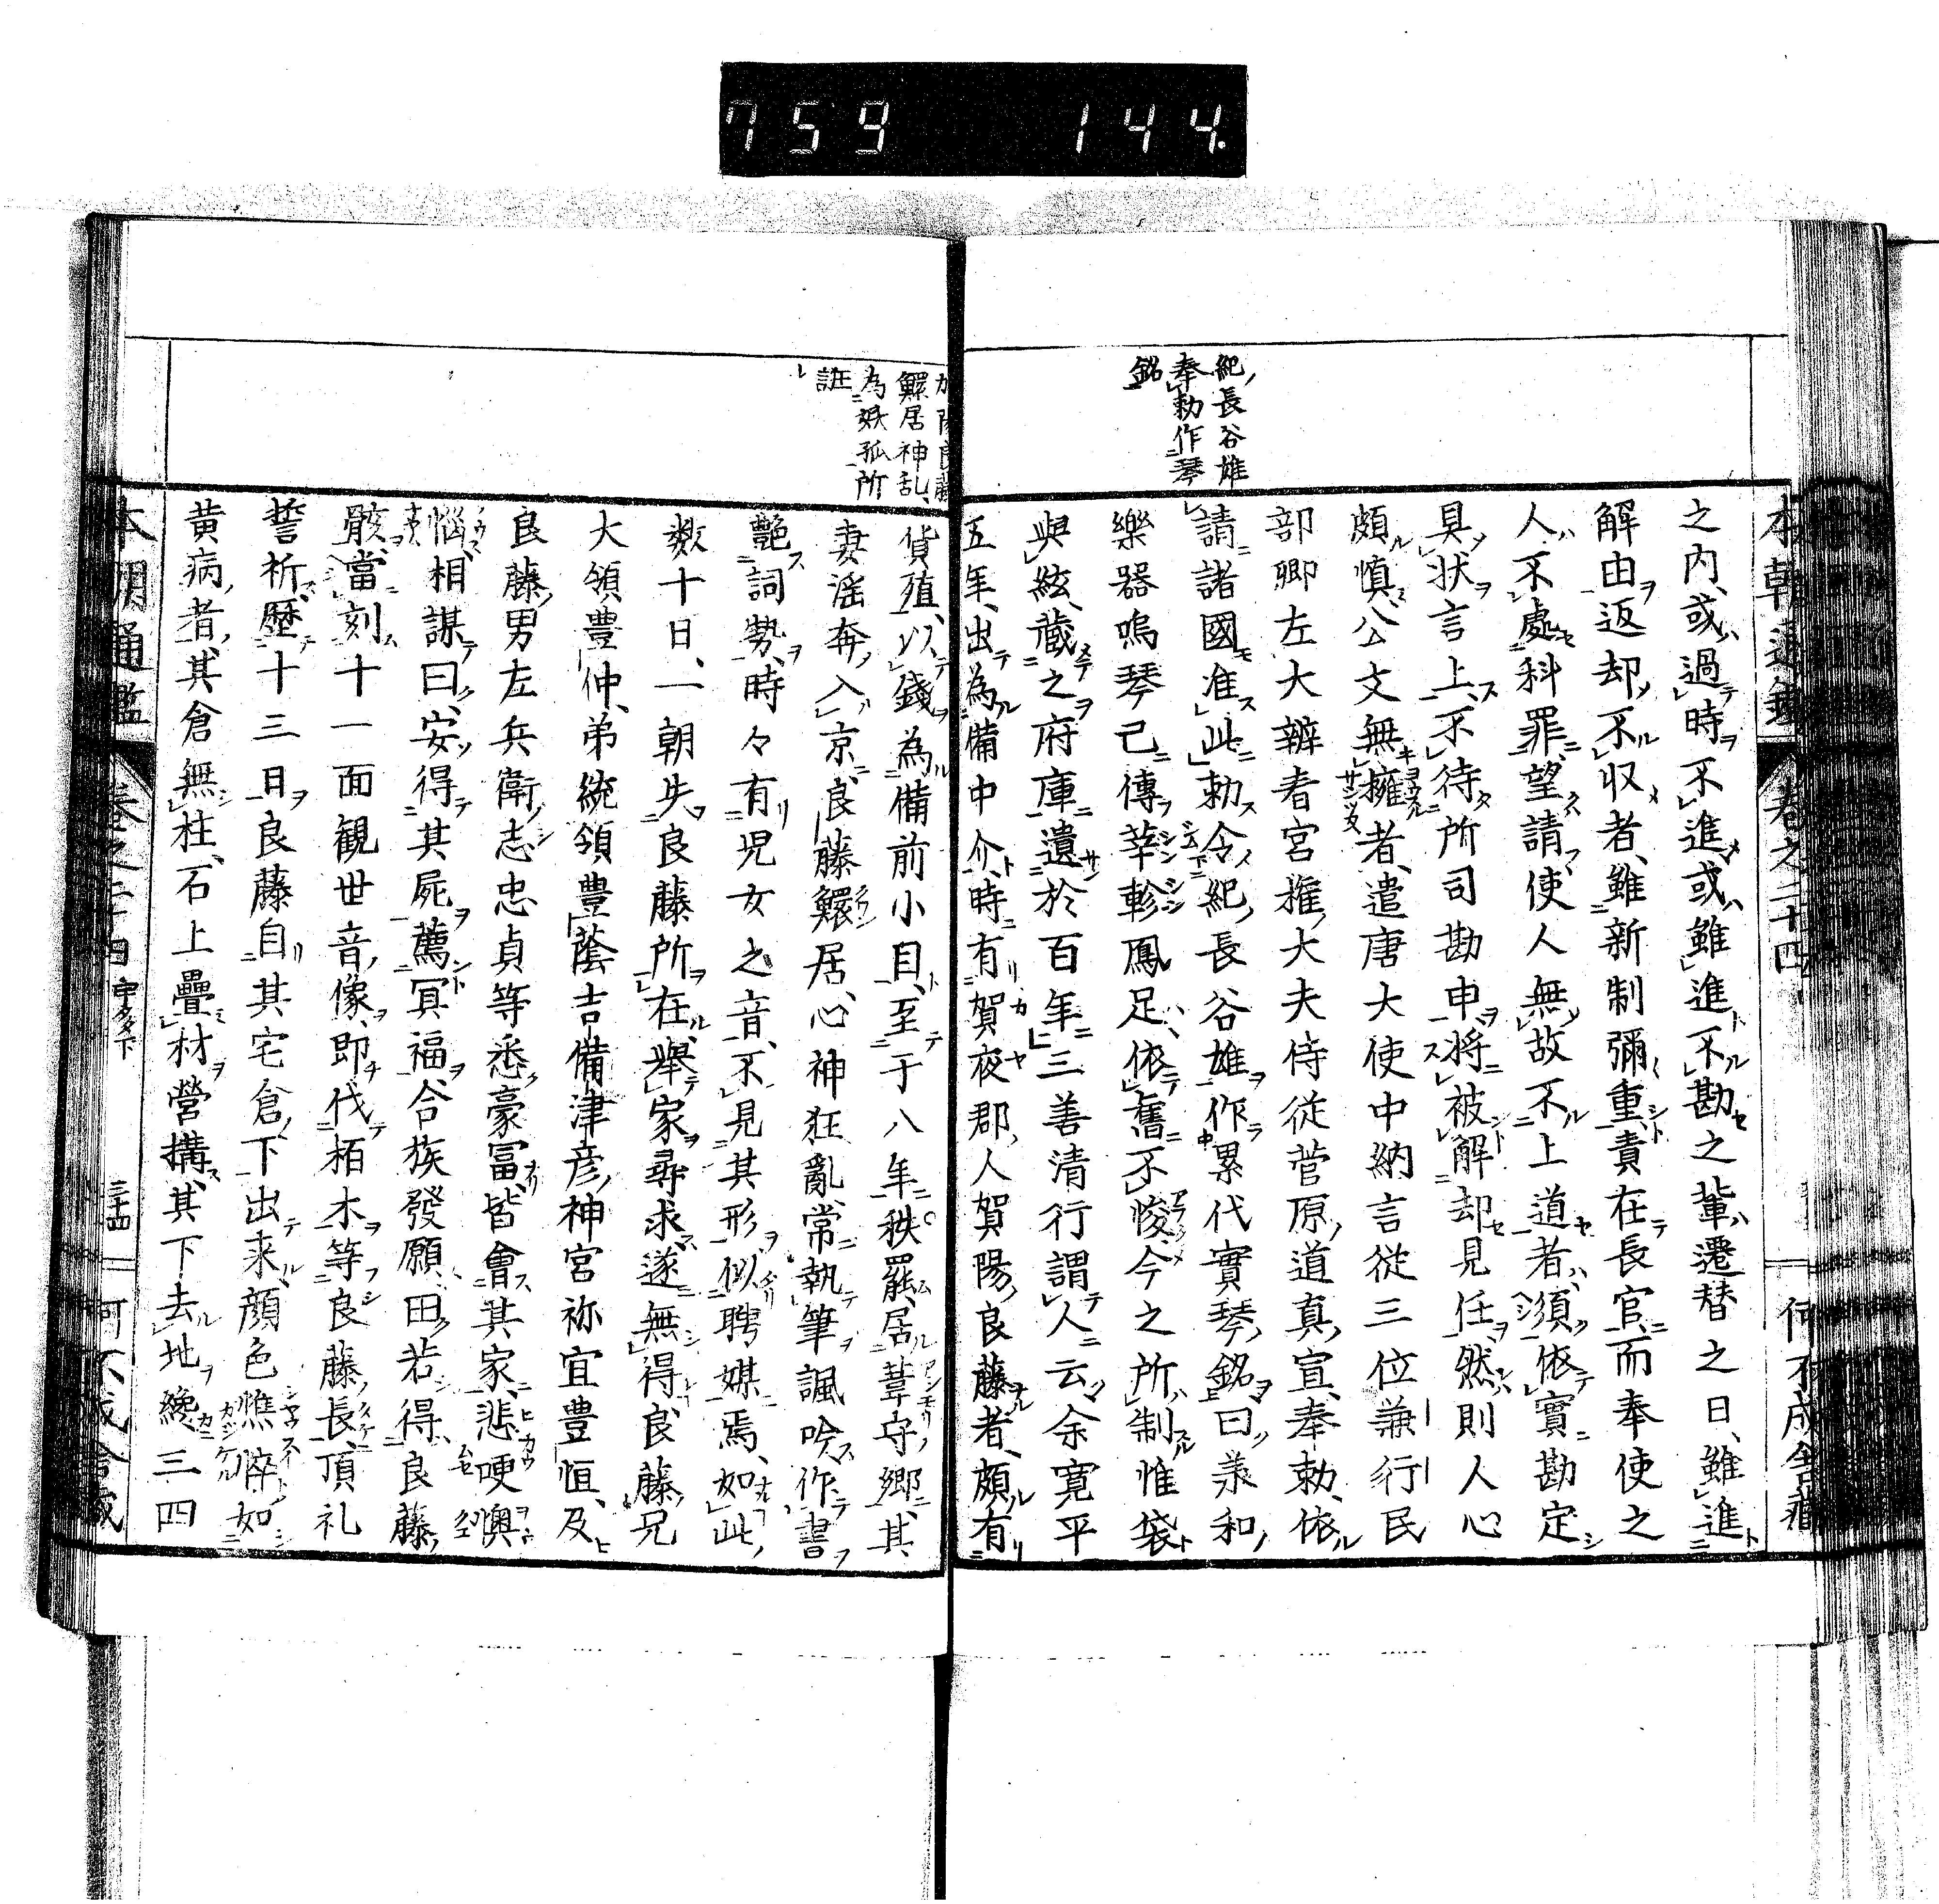 759 144.
紀長谷雄
奉勅作琴
銘
本朝通鑑 卷之二十四 何不成舎蔵
之内、或過時不進、或雖進不勘之輩、遷替之日、雖進
解由返却不収者、雖新制彌重、責在長官、而奉使之
人、不處科罪、望請使人無故不上道者、須依實勘定
具状言上、不待所司勘申、将被解却見任、然則人心
頗慎、公文無擁者、遣唐大使中納言從三位兼行民
部卿左大辨春宮権大夫侍從菅原道真宣、奉勅、依
請、諸國准此、勅令紀長谷雄作累代寶琴銘曰、羕和
樂器嗚琴已傳、莘軫鳳足、依舊不悛、今之所制、惟袋
與絃、藏之府庫、遺於百年、三善清行謂人云、余寛平
五年、出為備中介、時有賀夜郡人賀陽良藤者、頗有
賀陽良藤
鰥居神乱、
為妖孤所
誑
貨殖、以錢為備前小目、至于八年秩罷、居葦守郷、其
妻滛奔入京、良藤鰥居、心神狂亂、常執筆諷吟、作書
艶詞勢、時々有児女之音、不見其形、似聘媒焉、如此
数十日、一朝失良藤所在、舉家尋求、遂無得、良藤兄
大領豊仲、弟統領豊蔭、吉備津彦神宮祢宜豊恒、及
良藤男左兵衛志忠貞等、悉豪冨、皆會其家、悲哽懊
惱、相謀曰、安得其屍、薦冥福、合族發願曰、若得良藤
骸、當刻十一面観世音像、即伐栢木、等良藤長、頂礼
誓祈、歴十三日、良藤自其宅倉下出来、顔色憔悴、如
黄病者、其倉無柱、石上疊材營搆、其下去地纔三四
本朝通鑑 卷之二十四 宇多下 三十四 何不成舎蔵